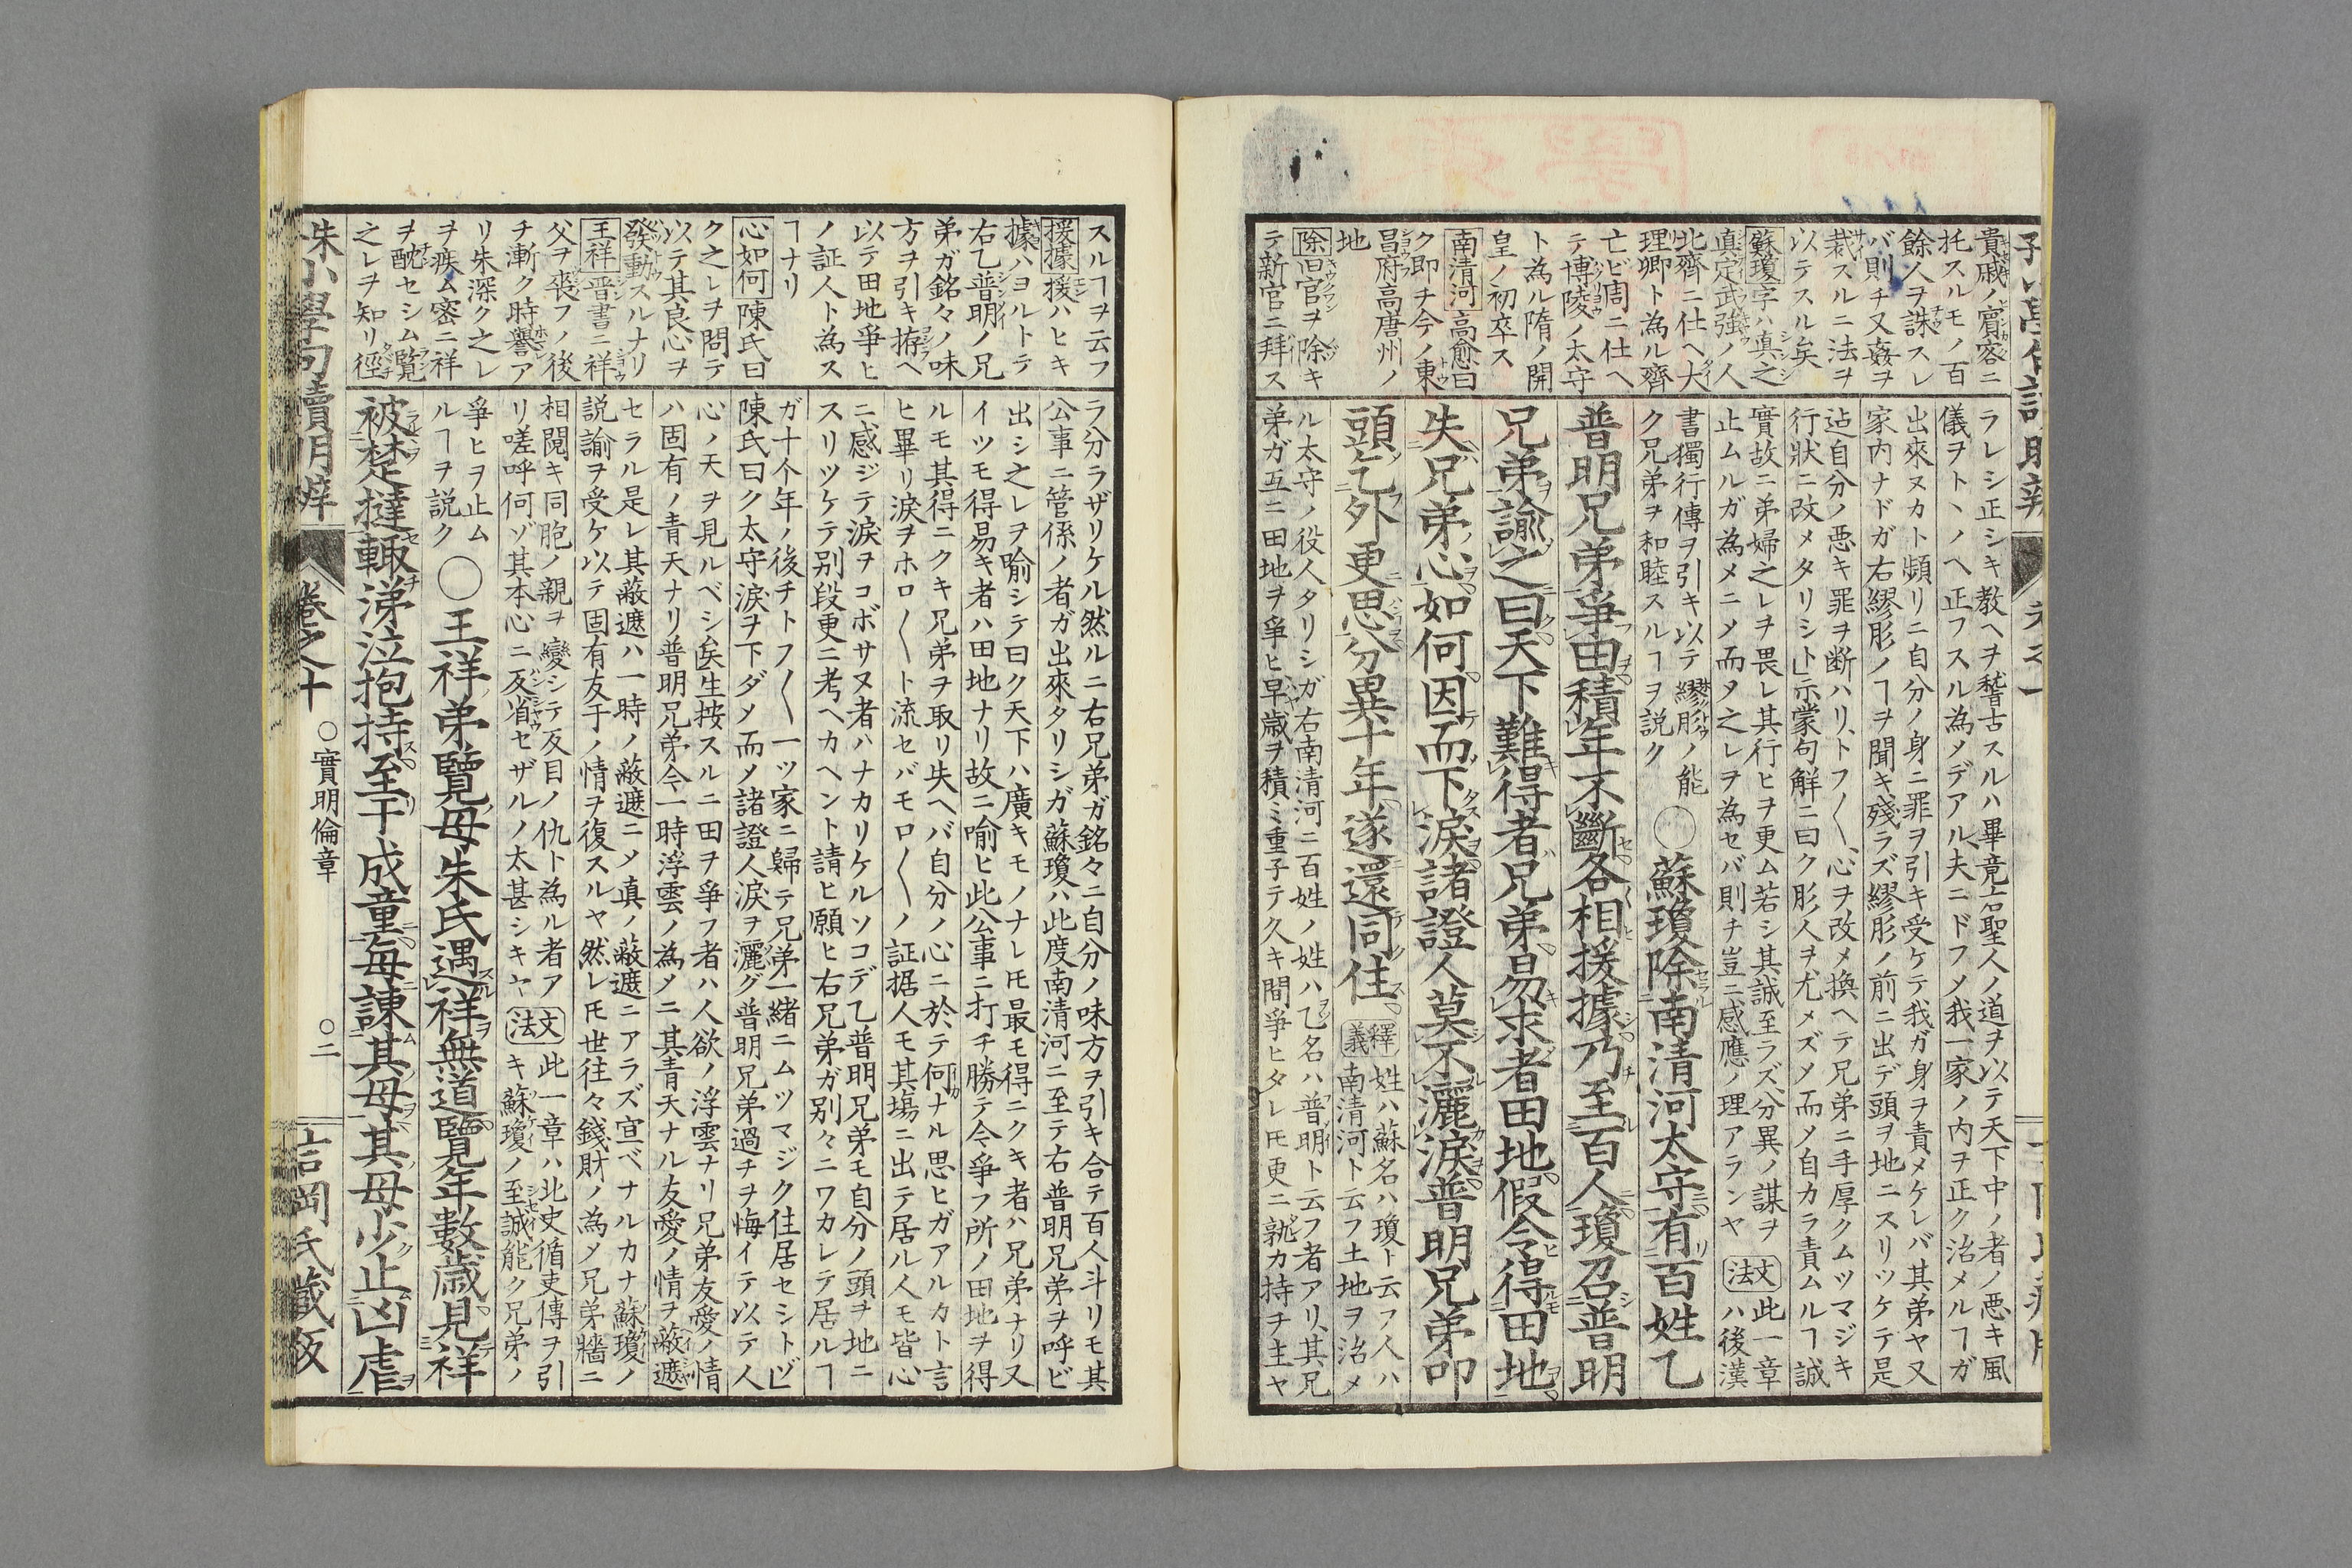 貴戚ノ賓客ニ
托スルモノ百
餘人ヲ誅スレ
バ則チ又姦ヲ
裁スルニ法ヲ
以テスル矣
蘇瓊字ハ真之
真定武強ノ人
北齊ニ仕ヘ大
理卿ト為ル齊
亡ビ周ニ仕ヘ
テ博陵ノ太守
ト為ル隋ノ開
皇ノ初卒ス
南清河高愈曰
ク即チ今ノ東
昌府高唐州ノ
地
除曰官ヲ除キ
テ新官ニ拜ス
ラレシ正シキ教ヘヲ稽古スルハ畢竟古聖人ノ道ヲ以テ天下中ノ者ノ悪キ風
儀ヲトヽノヘ正フスル為メデアル夫ニドフメ我一家ノ内ヲ正ク治メルヿガ
出來ヌカト頻リニ自分ノ身ニ罪ヲ引キ受ケテ我ガ身ヲ責メケレバ其弟ヤ又
家内ナドガ右繆肜ノヿヲ聞キ殘ラズ繆肜ノ前ニ出デ頭ヲ地ニスリツケテ是
迠自分ノ悪キ罪ヲ断ハリ、トフ〳〵心ヲ改メ換ヘテ兄弟ニ手厚クムツマジキ
行狀ニ改メタリシト」示蒙句解ニ曰ク肜人ヲ尤メズメ而メ自カラ責ムルヿ誠
實故ニ弟婦之レヲ畏レ其行ヒヲ更ム若シ其誠至ラズ分異ノ謀ヲ
止ムルガ為メニメ而メ之レヲ為セバ則チ豈ニ感應ノ理アランヤ 文法 此一章ハ後漢
書獨行傳ヲ引キ以テ繆肜ノ能
ク兄弟ヲ和睦スルヿヲ説ク
○蘇瓊除南清河太守有百姓乙
普明兄弟爭由積年不斷各相援據乃至百人瓊召普明
兄弟諭之曰天下難得者兄弟易求者田地假令得田地
失兄弟心如何因而下淚諸證人莫不灑淚普明兄弟叩
頭乞外更思分異十年遂還同住 釋義 姓ハ蘇名ハ瓊ト云フ人ハ
南清河ト云フ土地ヲ治メ
ル太守ノ役人タリシガ右南清河ニ百姓ノ姓ハ乙名ハ普明ト云フ者アリ其兄
弟ガ互ニ田地ヲ爭ヒ早歳ヲ積ミ重子テ久キ間爭ヒタレ𪜈更ニ孰カ持ヲ主ヤ
スルヿヲ云フ
援據援ハヒキ
據ハヨルトテ
右乙普明ノ兄
弟ガ銘々ノ味
方ヲ引キ拵ヘ
以テ田地爭ヒ
ノ証人ト為ス
ヿナリ
心如何陳氏曰
ク之レヲ問テ
以テ其良心ヲ
發動スルナリ
王祥晋書ニ祥
父ヲ喪フノ後
チ漸ク時譽ア
リ朱深ク之レ
ヲ疾ム密ニ祥
ヲ酖セシム覽
之レヲ知リ徑
ラ分ラザリケル然ルニ右兄弟ガ銘々ニ自分ノ味方ヲ引キ合テ百人斗リモ其
公事ニ管係ノ者ガ出來タリシガ蘇瓊ハ此度南清河ニ至テ右普明兄弟ヲ呼ビ
出シ之レヲ喻シテ曰ク天下ハ廣キモノナレ𪜈最モ得ニクキ者ハ兄弟ナリ又
イツモ得易キ者ハ田地ナリ故ニ喻ヒ此公事ニ打チ勝テ今爭フ所ノ田地ヲ得
ルモ其得ニクキ兄弟ヲ取リ失ヘバ自分ノ心ニ於テ何ナル思ヒガアルカト言
ヒ畢リ淚ヲホロ〳〵ト流セバモロ〳〵ノ証据人モ其塲ニ出テ居ル人モ皆心
ニ感ジテ淚ヲコボサヌ者ハナカリケルソコデ乙普明兄弟モ自分ノ頭ヲ地ニ
スリツケテ別段更ニ考ヘカヘント請ヒ願ヒ右兄弟ガ別々ニワカレテ居ルヿ
ガ十个年ノ後チトフ〳〵一ツ家ニ歸テ兄弟一緒ニムツマジク住居セシトゾ」
陳氏曰ク太守淚ヲ下ダメ而メ諸證人淚ヲ灑グ普明兄弟過チヲ悔イテ以テ人
心ノ天ヲ見ルベシ矣生按スルニ田ヲ爭フ者ハ人欲ノ浮雲ナリ兄弟友愛ノ情
ハ固有ノ青天ナリ普明兄弟今一時浮雲ノ為メニ其青天ナル友愛ノ情ヲ蔽遮
セラル是レ其蔽遮ハ一時ノ蔽遮ニメ真ノ蔽遮ニアラズ宣ベナルカナ蘇瓊ノ
説諭ヲ受ケ以テ固有友于ノ情ヲ復スルヤ然レ𪜈世往々錢財ノ為メ兄弟牆ニ
相鬩キ同胞ノ親ヲ變シテ反目ノ仇ト為ル者ア
リ嗟呼何ゾ其本心ニ反省セザルノ太甚シキヤ 文法 此一章ハ北史循吏傳ヲ引
キ蘇瓊ノ至誠能ク兄弟ノ
爭ヒヲ止ム
ルヿヲ説ク
○王祥弟覽母朱氏遇祥無道覽年數歳見祥
被楚撻輙涕泣抱持至于成童每諫其母其母少止凶虐
朱小學句讀明辨 卷之十 ○實明倫章 ○二 吉岡氏藏版